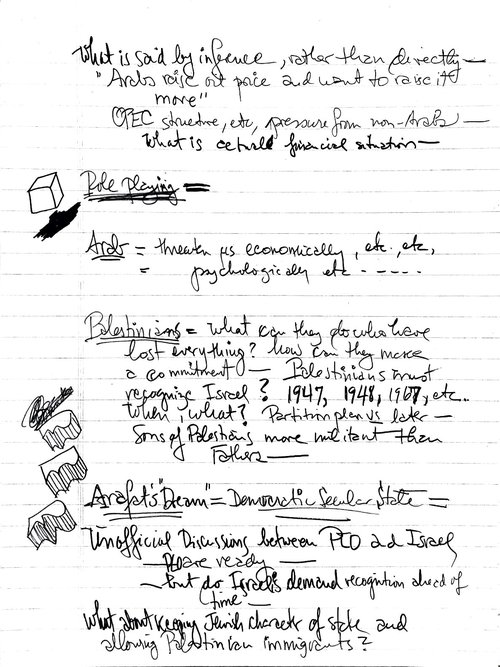 What is said by inference, rather than directly —
"Arabs raise oil price and want to raise it
more"
OPEC structure, etc, pressure from non-Arabs —
What is actual financial situation —
Role Playing =
Arab = threaten us economically, etc, etc,
= psychologically etc - - - - -
Palestinians = What can they do who have
lost everything? How can they make
a commitment — Palestinians must
recognize Israel? 1947, 1948, 1967, etc..
When, what? Partition plan vs later —
Sons of Palestinians more militant than
Fathers —
Arafat's "Dream" = Democratic Secular State =
Unofficial Discussions between PLO and Israel
— PLO are ready —
— But do Israel's demand recognition ahead of
time —
What about keeping Jewish character of state and
allowing Palestinian immigrants?